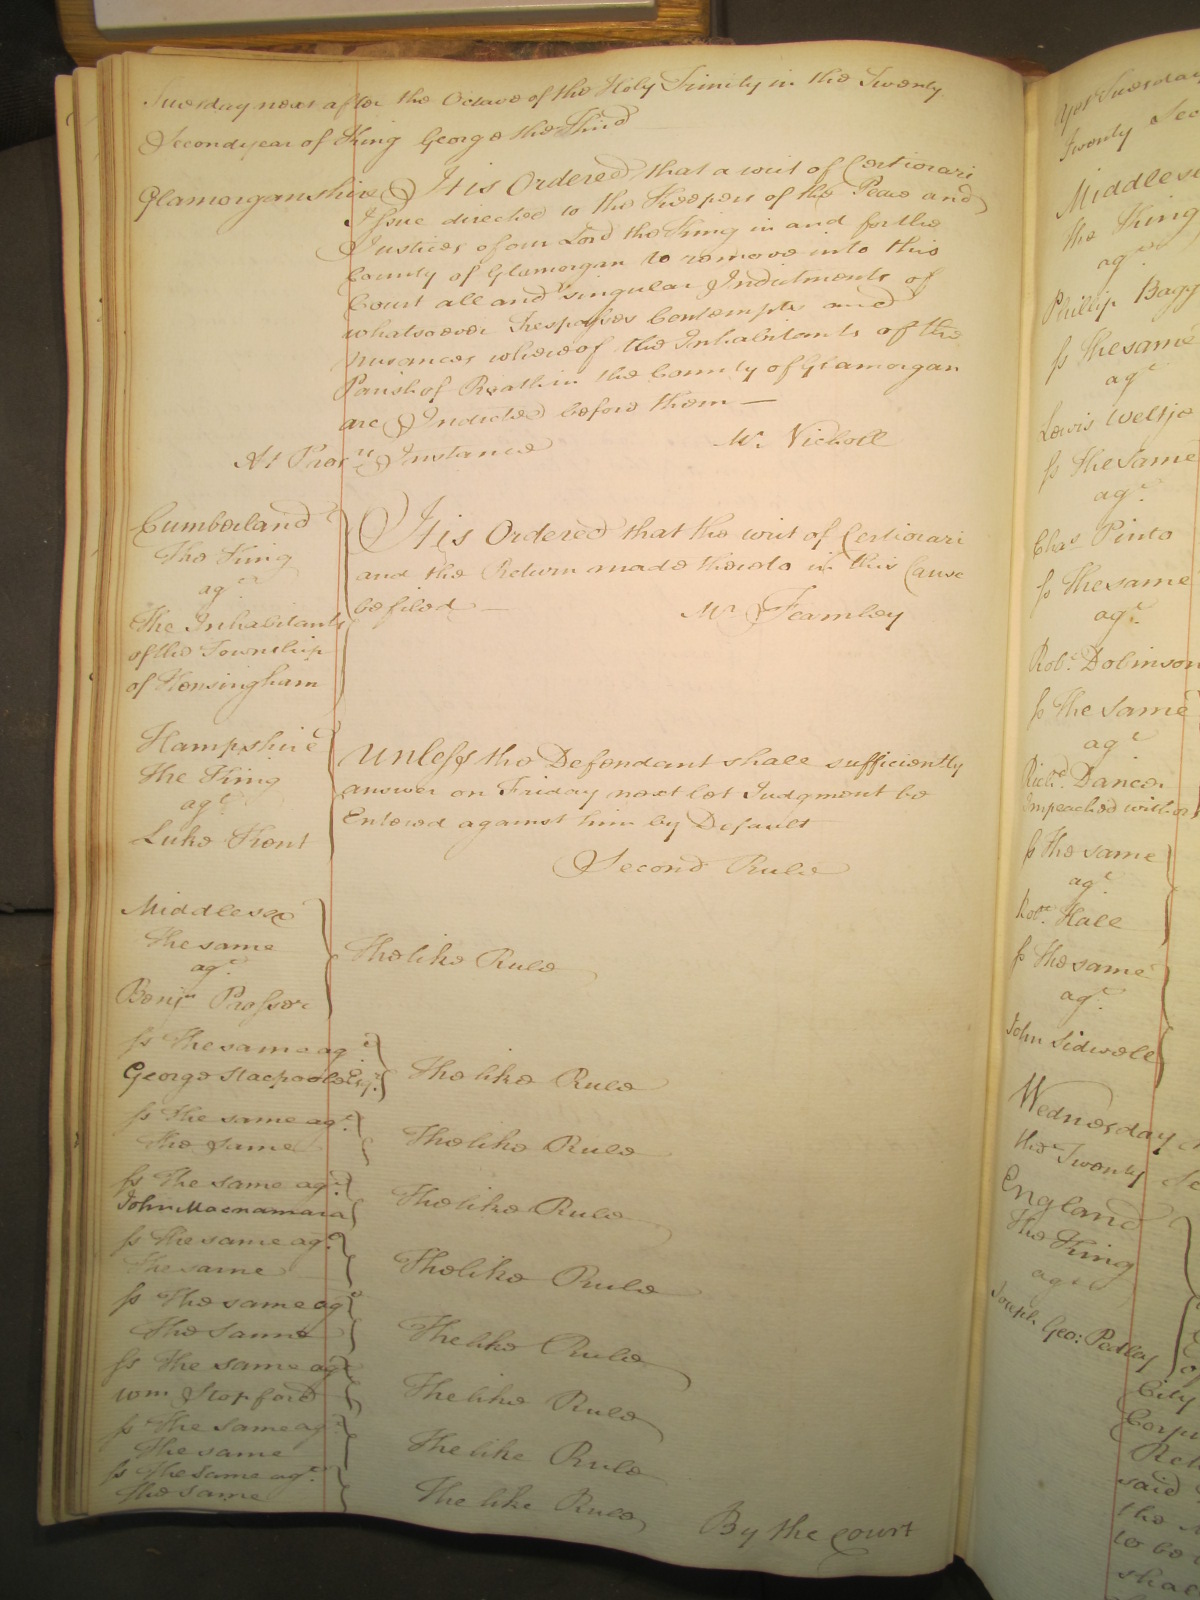 Tuesday next after the Octave of the Holy Trinity in the Twenty
Second year of King George the Third
Glamorganshire It is Ordered that a writ of Certiorari
Issue directed to the Keepers of the Peace and
Justices of our Lord the King in and for the
County of Glamorgan to remove into this
Court all and singular Indictments of
whatsoever Trespasses Contempts and
nusances whereof the Inhabitants of the
Parish of Roath in the County of Glamorgan
are Indicted before them —
At Pros.rs Instance Mr. Nicholl
Cumberland
The King
agt.
The Inhabitants
of the Township
of Hensingham
It is Ordered that the writ of Certiorari
and the Return made thereto in this Cause
be filed — Mr. Fearnley
Hampshire
The King
agt.
Luke Kent
Unless the Defendant shall sufficiently
answer on Friday next let Judgment be
Entered against him by Default
Second Rule
Middlesex
The same
agt.
Benjn. Prosser
The like Rule
ss The same agt
George Stacpoole Esqr.
The like Rule
ss The same agt.
The same
The like Rule
ss The same agt.
John Macnamara
The like Rule
ss The same agt.
The same
The like Rule
ss The same agt
The same
The like Rule
ss The same agt
Wm. Stopford
The like Rule
ss The same agt.
The same
The like Rule
ss The same agt.
The same
The like Rule
By the Court
yet Tuesday
Twenty Sec
Middlesex
The King
agt.
Phillip Bagg
ss The same
agt
Lewis Weltje
ss The same
agt.
Chas Pinto
ss The same
agt.
Robt. Dobinson
ss The same
agt
Richd. Dancer
Impeached with or
ss The same
agt.
Robt. Hall
ss The same
agt.
John Sidwell
Wednesday
the Twenty Se
England
The King
agt
Joseph Geo: Pedley
City
Corpu
Ret
said
the
to be
shal